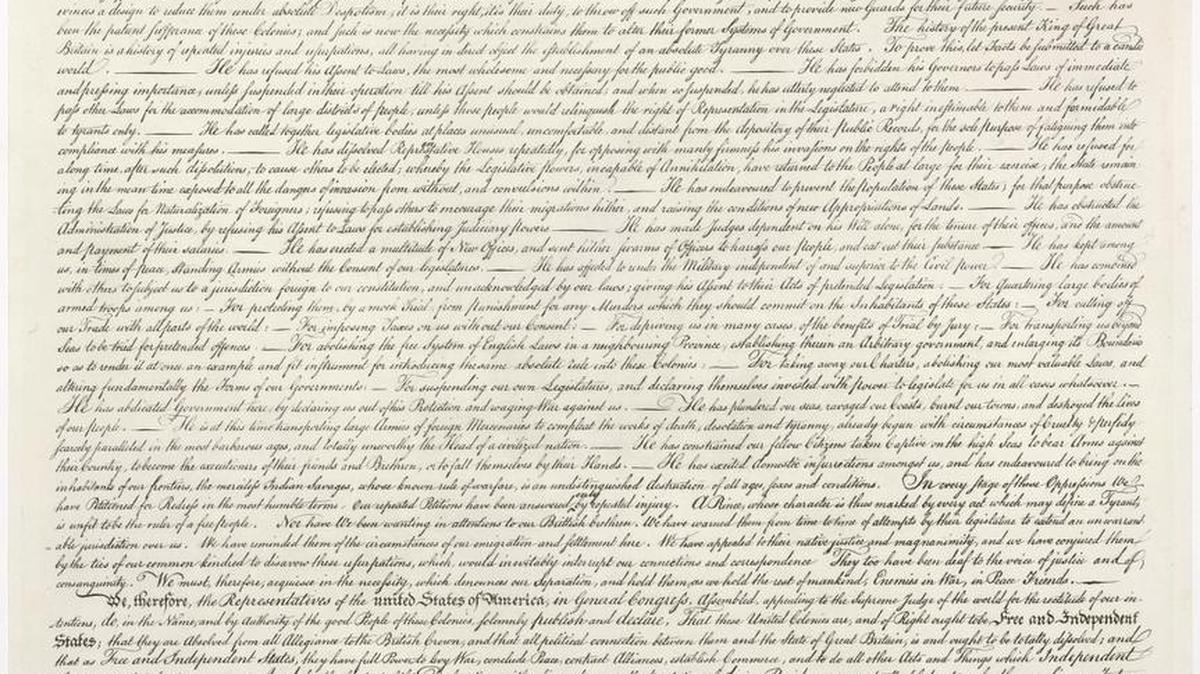 evinces a design to reduce them under absolute Despotism, it is their right, it is their duty, to throw off such Government, and to provide new Guards for their future security. — Such has
been the patient sufferance of these Colonies; and such is now the necessity which constrains them to alter their former Systems of Government. The history of the present King of Great
Britain is a history of repeated injuries and usurpations, all having in direct object the establishment of an absolute Tyranny over these States. To prove this, let Facts be submitted to a candid
world. — He has refused his Assent to Laws, the most wholesome and necessary for the public good. — He has forbidden his Governors to pass Laws of immediate
and pressing importance, unless suspended in their operation till his Assent should be obtained; and when so suspended, he has utterly neglected to attend to them. — He has refused to
pass other Laws for the accommodation of large districts of people, unless those people would relinquish the right of Representation in the Legislature, a right inestimable to them and formidable
to tyrants only. — He has called together legislative bodies at places unusual, uncomfortable, and distant from the depository of their public Records, for the sole purpose of fatiguing them into
compliance with his measures. — He has dissolved Representative Houses repeatedly, for opposing with manly firmness his invasions on the rights of the people. — He has refused for
a long time, after such dissolutions, to cause others to be elected; whereby the Legislative powers, incapable of Annihilation, have returned to the People at large for their exercise; the State remain
ing in the mean time exposed to all the dangers of invasion from without, and convulsions within. — He has endeavoured to prevent the population of these States; for that purpose obstruc
ting the Laws for Naturalization of Foreigners; refusing to pass others to encourage their migrations hither, and raising the conditions of new Appropriations of Lands. — He has obstructed the
Administration of Justice, by refusing his Assent to Laws for establishing Judiciary powers — He has made Judges dependent on his Will alone, for the tenure of their offices, and the amount
and payment of their salaries. — He has erected a multitude of New Offices, and sent hither swarms of Officers to harrass our people, and eat out their substance — He has kept among
us, in times of peace, Standing Armies without the Consent of our legislatures. — He has affected to render the Military independent of and superior to the Civil power. — He has combined
with others to subject us to a jurisdiction foreign to our constitution, and unacknowledged by our laws; giving his Assent to their Acts of pretended Legislation: — For Quartering large bodies of
armed troops among us: — For protecting them, by a mock Trial, from punishment for any Murders which they should commit on the Inhabitants of these States: — For cutting off
our Trade with all parts of the world: — For imposing Taxes on us without our Consent: — For depriving us in many cases, of the benefits of Trial by Jury: — For transporting us beyond
Seas to be tried for pretended offences — For abolishing the free System of English Laws in a neighbouring Province, establishing therein an Arbitrary government, and enlarging its Boundaries
so as to render it at once an example and fit instrument for introducing the same absolute rule into these Colonies: — For taking away our Charters, abolishing our most valuable Laws, and
altering fundamentally the Forms of our Governments: — For suspending our own Legislatures, and declaring themselves invested with power to legislate for us in all cases whatsoever. —
He has abdicated Government here, by declaring us out of his Protection and waging War against us. — He has plundered our seas, ravaged our Coasts, burnt our towns, and destroyed the lives
of our people. — He is at this time transporting large Armies of foreign Mercenaries to compleat the works of death, desolation and tyranny, already begun with circumstances of Cruelty & perfidy
scarcely paralleled in the most barbarous ages, and totally unworthy the Head of a civilized nation. — He has constrained our fellow Citizens taken Captive on the high Seas to bear Arms against
their Country, to become the executioners of their friends and Brethren, or to fall themselves by their Hands. — He has excited domestic insurrections amongst us, and has endeavoured to bring on the
inhabitants of our frontiers, the merciless Indian Savages, whose known rule of warfare, is an undistinguished destruction of all ages, sexes and conditions. In every stage of these Oppressions We
have Petitioned for Redress in the most humble terms: Our repeated Petitions have been answered only by repeated injury. A Prince, whose character is thus marked by every act which may define a Tyrant,
is unfit to be the ruler of a free people. Nor have We been wanting in attentions to our Brittish brethren. We have warned them from time to time of attempts by their legislature to extend an unwarrant
able jurisdiction over us. We have reminded them of the circumstances of our emigration and settlement here. We have appealed to their native justice and magnanimity, and we have conjured them
by the ties of our common kindred to disavow these usurpations, which, would inevitably interrupt our connections and correspondence They too have been deaf to the voice of justice and of
consanguinity. We must, therefore, acquiesce in the necessity, which denounces our Separation, and hold them, as we hold the rest of mankind, Enemies in War, in Peace Friends. —
We, therefore, the Representatives of the united States of America, in General Congress, Assembled, appealing to the Supreme Judge of the world for the rectitude of our in-
tentions, do, in the Name, and by Authority of the good People of these Colonies, solemnly publish and declare, That these United Colonies are, and of Right ought to be Free and Independent
States; that they are Absolved from all Allegiance to the British Crown, and that all political connection between them and the State of Great Britain, is and ought to be totally dissolved; and
that as Free and Independent States, they have full Power to levy War, conclude Peace, contract Alliances, establish Commerce, and to do all other Acts and Things which Independent